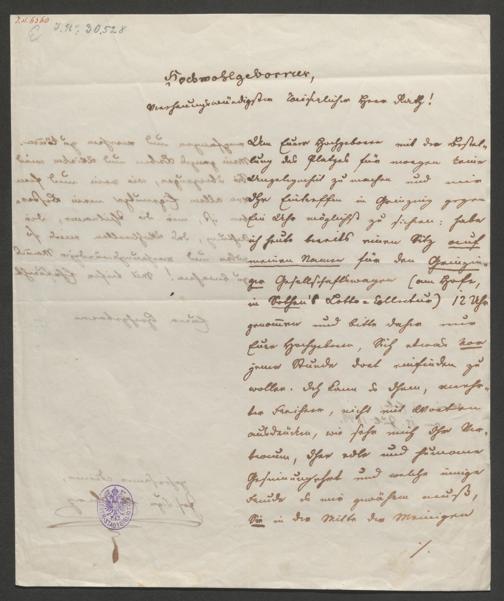 J.N. 6360
J.N. 30,528
Hochwohlgeborner,
Verehrungswürdigster Kaiserlicher Herr Rath!
Um Euer Hochgeboren mit der Bestel-
lung des Platzes für morgen keine
Ungelegenheit zu machen und mir
Ihr Eintreffen in Grinzing gegen
Ein Uhr möglichst zu sichern: habe
ich heute bereits einen Sitz auf
meinen Namen für den Grinzin-
ger Gesellschaftswagen (am Hofe,
in Lotto-Collectur) 12 Uhr
genommen und bitte daher nur
Euer Hochgeboren, Sich etwas vor
jener Stunde dort einfinden zu
wollen. Ich kann es Ihnen, verehr-
ter Freiherr, nicht mit Worten
ausdrücken, wie sehr mich Ihr Ver-
trauen, Ihre edle und humane
Gesinnung und welche innige
Freude es mir gewähren muß,
Sie in der Mitte der Meinigen
./.